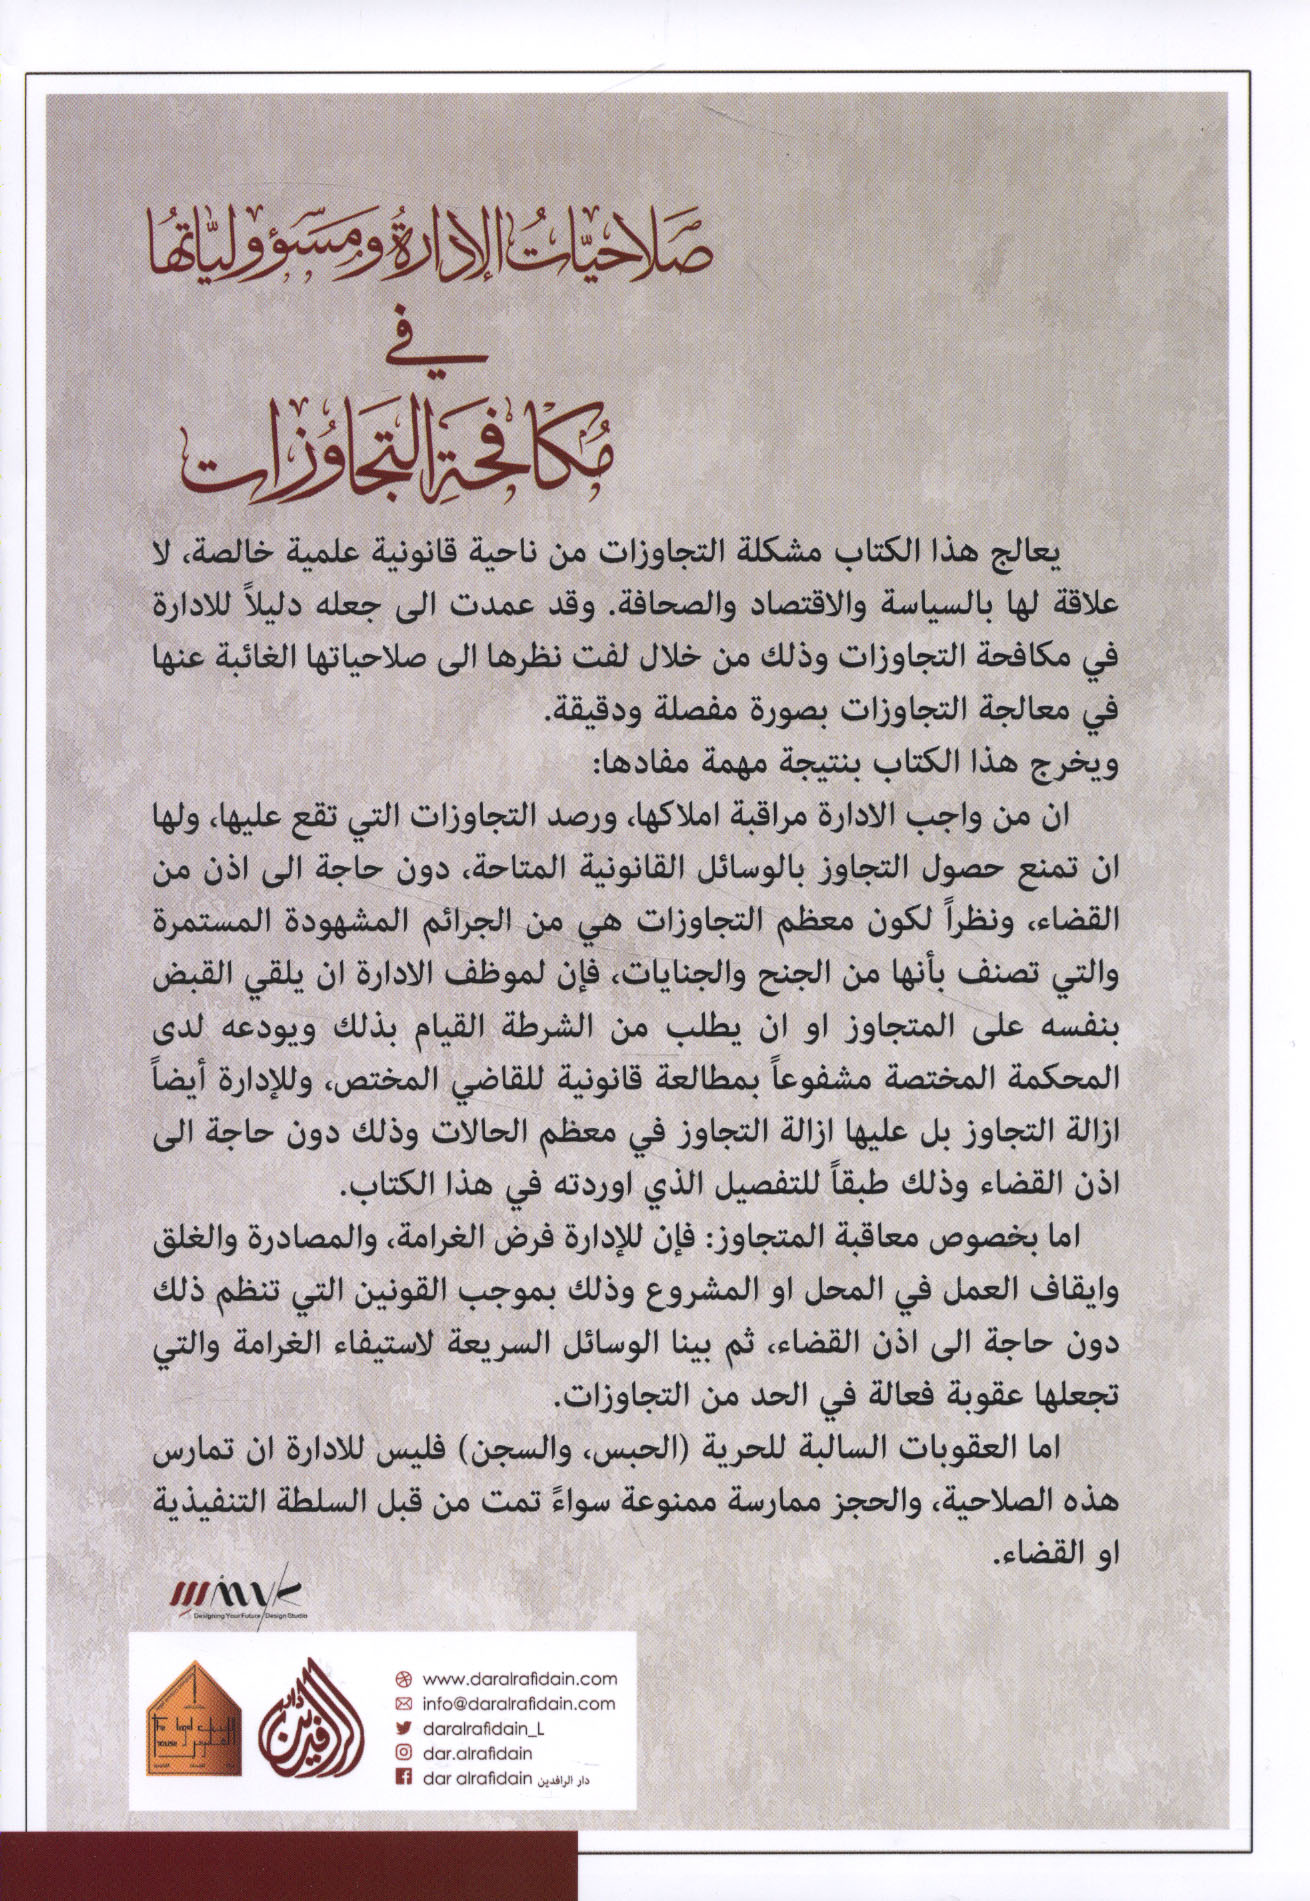 صَلاحيَّاتُ الإدارةُ ومَسؤولياتها
في
مُكافحةِ التَجاوُزات
يعالج هذا الكتاب مشكلة التجاوزات من ناحية قانونية علمية خالصة، لا
علاقة لها بالسياسة والاقتصاد والصحافة. وقد عمدت الى جعله دليلاً للادارة
في مكافحة التجاوزات وذلك من خلال لفت نظرها الى صلاحياتها الغائبة عنها
في معالجة التجاوزات بصورة مفصلة ودقيقة.
ويخرج هذا الكتاب بنتيجة مهمة مفادها:
ان من واجب الادارة مراقبة املاكها، ورصد التجاوزات التي تقع عليها، ولها
ان تمنع حصول التجاوز بالوسائل القانونية المتاحة، دون حاجة الى اذن من
القضاء، ونظراً لكون معظم التجاوزات هي من الجرائم المشهودة المستمرة
والتي تصنف بأنها من الجنح والجنايات، فإن لموظف الادارة ان يلقي القبض
بنفسه على المتجاوز او ان يطلب من الشرطة القيام بذلك ويودعه لدى
المحكمة المختصة مشفوعاً بمطالعة قانونية للقاضي المختص، وللإدارة أيضاً
ازالة التجاوز بل عليها ازالة التجاوز في معظم الحالات وذلك دون حاجة الى
اذن القضاء وذلك طبقاً للتفصيل الذي اوردته في هذا الكتاب.
اما بخصوص معاقبة المتجاوز: فإن للإدارة فرض الغرامة، والمصادرة والغلق
وايقاف العمل في المحل او المشروع وذلك بموجب القونين التي تنظم ذلك
دون حاجة الى اذن القضاء، ثم بينا الوسائل السريعة لاستيفاء الغرامة والتي
تجعلها عقوبة فعالة في الحد من التجاوزات.
اما العقوبات السالبة للحرية (الحبس، والسجن) فليس للادارة ان تمارس
هذه الصلاحية، والحجز ممارسة ممنوعة سواءً تمت من قبل السلطة التنفيذية
او القضاء.
Designing Your Future / Design Studio
دار الرافدين
The legal house
www.daralrafidain.com
info@daralrafidain.com
daralrafidain_L
dar.alrafidain
dar alrafidain دار الرافدين